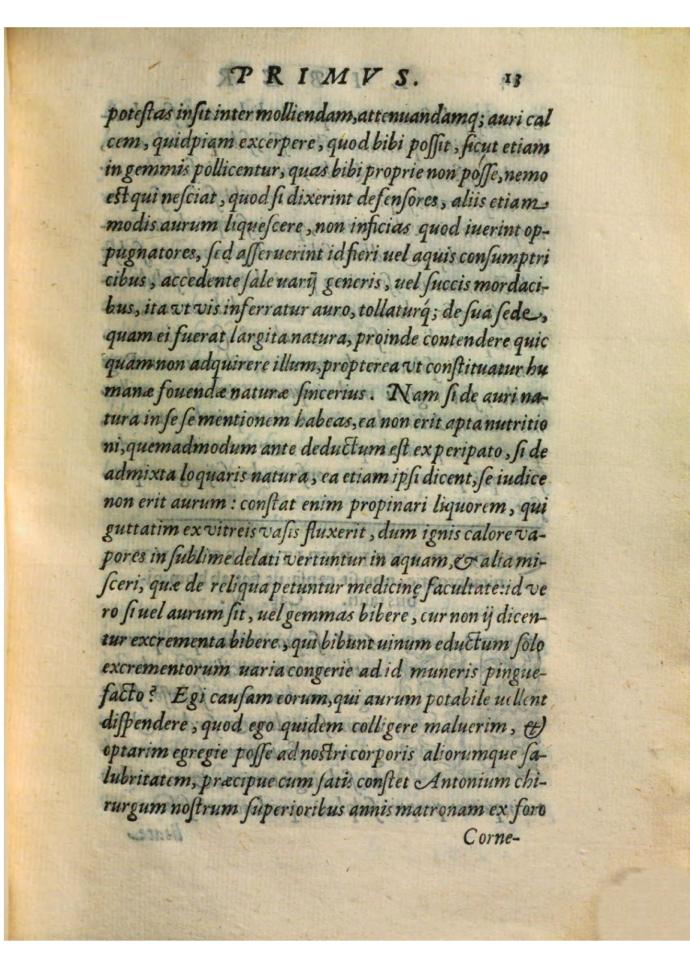 PRIMVS. 13
potestas insit inter molliendam, attenuandamq; auri cal
cem, quidpiam excerpere, quod bibi possit, sicut etiam
in gemmis pollicentur, quas bibi proprie non posse, nemo
est qui nesciat, quod si dixerint defensores, aliis etiam
modis aurum liquescere, non inficias quod iuerint op-
pugnatores, sed asseruerint id fieri uel aquis consumptri
cibus, accedente sale uarij generis, uel succis mordaci-
bus, ita vt vis inferratur auro, tollaturq́; de sua sede,
quam ei fuerat largita natura, proinde contendere quic
quam non adquirere illum, propterea vt constituatur hu
manæ fouendæ naturæ sincerius. Nam si de auri na-
tura in se se mentionem habeas, ea non erit apta nutritio
ni, quemadmodum ante deductum est ex peripato, si de
admixta loquaris natura, ea etiam ipsi dicent, se iudice
non erit aurum: constat enim propinari liquorem, qui
guttatim ex vitreis vasis fluxerit, dum ignis calore va-
pores in sublime delati vertuntur in aquam, & alia mi-
sceri, quæ de reliqua petuntur medicinę facultate: id ve
ro si uel aurum sit, uel gemmas bibere, cur non ij dicen-
tur excrementa bibere, qui bibunt uinum eductum solo
excrementorum uaria congerie ad id muneris pingue-
facto? Egi causam eorum, qui aurum potabile uellent
dispendere, quod ego quidem colligere maluerim, &
optarim egregie posse ad nostri corporis aliorumque sa-
lubritatem, præcipue cum satis constet Antonium chi-
rurgum nostrum superioribus annis matronam ex foro
Corne-